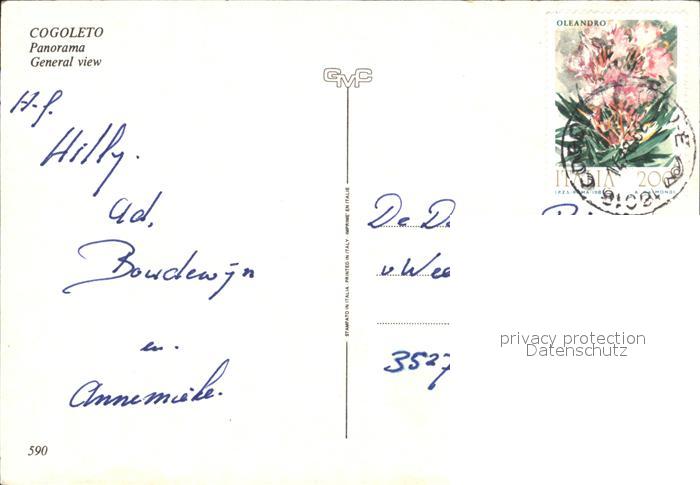 COGOLETO
Panorama
General view
GMC
OLEANDRO
ITALIA 200
H.g.
Hilly.
Ad,
Boudewijn
en.
Annemieke.
STAMPATO IN ITALIA PRINTED IN ITALY IMPRIMÉ EN ITALIE
De D
v Wee
3527
privacy protection
Datenschutz
590